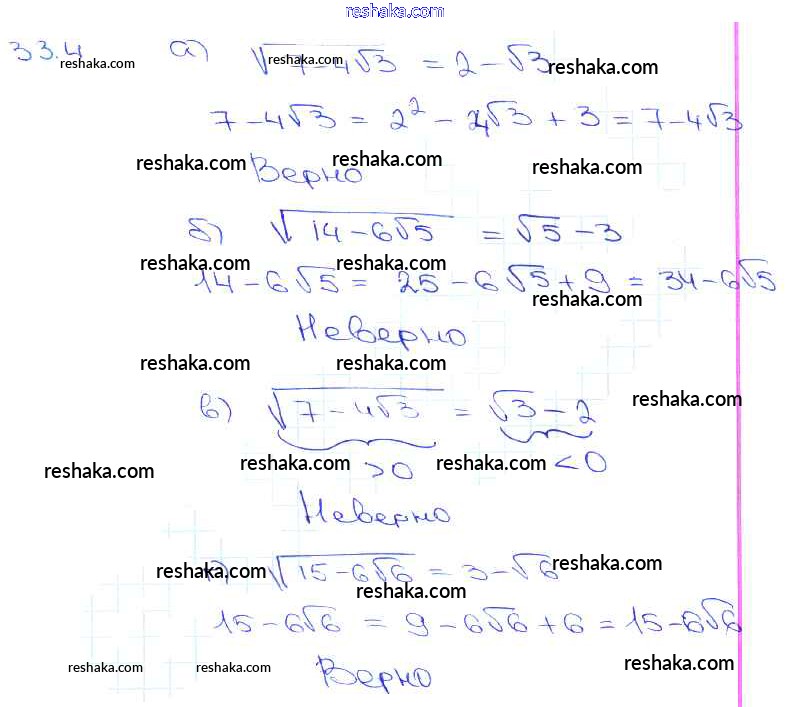 reshaka.com
33.4 а) √7-4√3 = 2-√3
reshaka.com reshaka.com reshaka.com
7-4√3 = 2² - 4√3 + 3 = 7-4√3
reshaka.com reshaka.com reshaka.com
Верно
б) √14-6√5 = √5-3
reshaka.com reshaka.com
14-6√5 = 25-6√5+9 = 34-6√5
reshaka.com
Неверно
reshaka.com reshaka.com
в) √7-4√3 = √3-2
reshaka.com
reshaka.com reshaka.com >0 reshaka.com <0
Неверно
reshaka.com √15-6√6 = 3-√6 reshaka.com
reshaka.com
15-6√6 = 9-6√6+6 = 15-6√6
reshaka.com reshaka.com reshaka.com
Верно